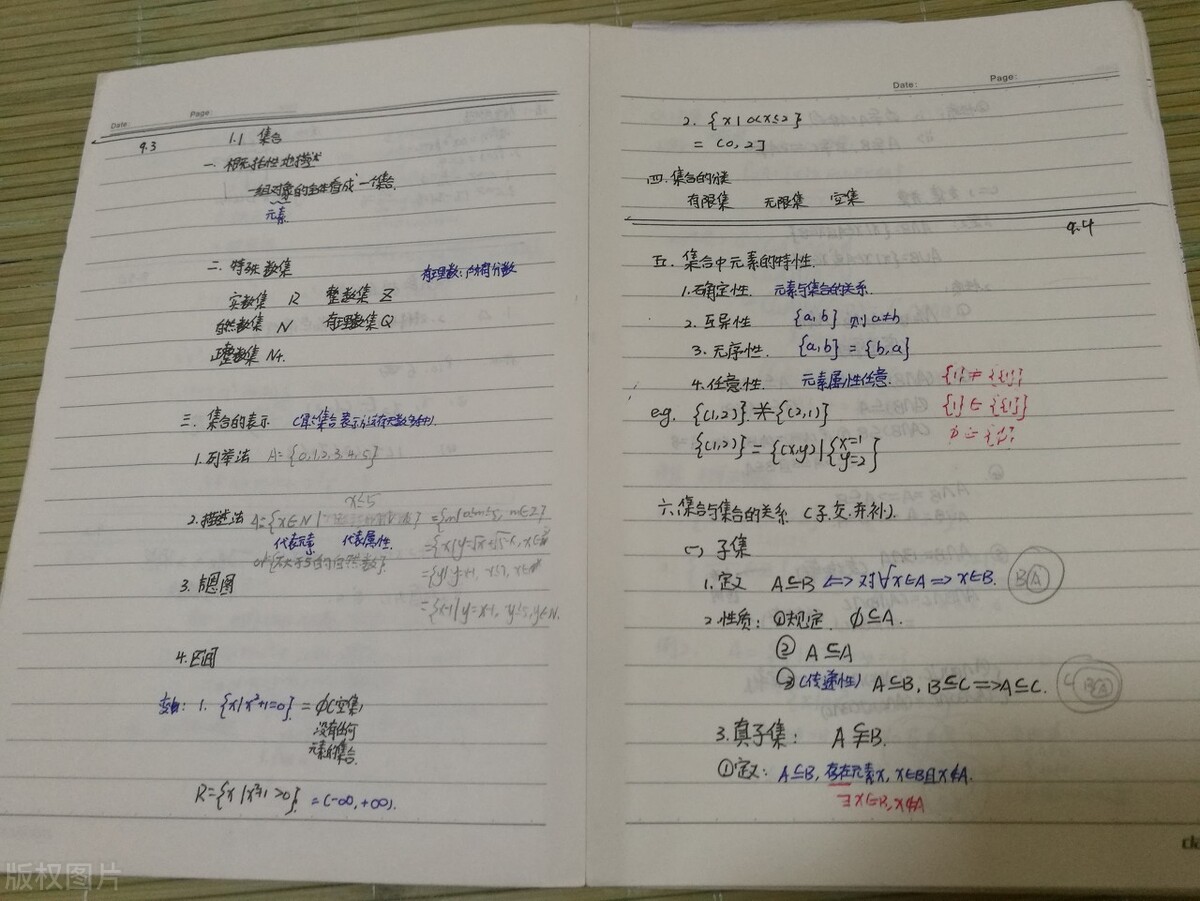 Date: Page:
9.3 1.1 集合
一. 概括性地描述
一组对象的全体看成一个集合.
元素
二. 特殊数集
有理数:所有分数
实数集 R 整数集 Z
自然数集 N 有理数集Q
正整数集 N+.
三. 集合的表示
1.列举法 A={0,1,2,3,4,5}
x≤5
2.描述法 A={x∈N| } ={m|0≤m≤5, m∈Z}
代表元素 代表属性.
不大于5的自然数
3.
={x-1|y=x+1, y≤5,y∈N.
4.区间
1. {x|x²+1=0} = ϕ(空集,
没有任何
元素的集合.
R={x|x²+1>0} =(-∞,+∞).
Date: Page:
2. {x|0<x≤2}
= (0,2]
四.集合的分类
有限集 无限集 空集
9.4
五. 集合中元素的特性.
1.确定性. 元素与集合的关系.
2.互异性 {a,b} 则a≠b
3.无序性. {a,b}={b,a}
4.任意性. 元素属性任意.
{1}≠{{1}}
{1}∈{{1}}
eg. {(1,2)}≠{(2,1)}
{(1,2)}={(x,y)|{x=1
y=2}
六.集合与集合的关系 (子.交.并.补).
(一) 子集
1.定义 A⊆B ⟺ 对∀x∈A⟹x∈B. B A
2.性质: ①规定 ϕ⊆A.
② A⊆A
③(传递性) A⊆B, B⊆C⟹A⊆C. C B A
3.真子集: A⫋B.
①定义: A⊆B, 存在元素x, x∈B且x∉A.
∃x∈B,x∉A
版权图片